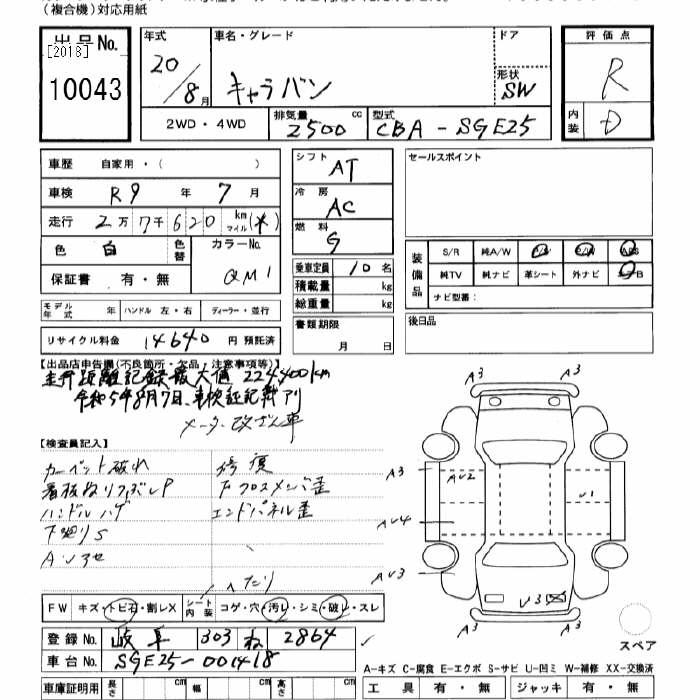 (複合機)対応用紙
出品No.
[2018]
10043
年式
20/8月
車名・グレード
キャラバン
ドア
形状
SW
2WD・4WD
排気量
2500 cc
型式
CBA-SGE25
評価点
R
内装
D
車歴 自家用・( )
車検 R9 年 7 月
走行 2万7千620 km マイル (*)
色 白 色替
カラーNo.
QM1
保証書 有・無
モデル年式 年 ハンドル 左・右 ディーラー・並行
リサイクル料金 14640 円 預託済
シフト
AT
冷房
AC
燃料
G
乗車定員 10 名
積載量 kg
総重量 kg
書類期限
月 日
セールスポイント
装備品
S/R 純A/W P/S P/W ABS
純TV 純ナビ 革シート 外ナビ
ナビ型番:
後日品
【出品店申告欄(不良箇所・欠品・注意事項等)】
走行距離記録最大値 224400km
令和5年8月7日、車検証記載アリ
メーター改ざん車
【検査員記入】
カーペット破れ
看板ぬりつぶしP
ハンドルハゲ
下廻りS
修復
F クロスメンバ歪
エンドパネル歪
へたり
FW キズ・トビ石・割レX
シート内装 コゲ・穴・汚レ・シミ・破レ・スレ
登録No. 岐阜 303 ね 2864
車台No. SGE25-001418
車庫証明用 長さ cm 幅 cm 高さ cm
A3
A3
A3
AU2
U1
AU4
AU3
A3
A3
スペア
A-キズ C-腐食 E-エクボ S-サビ U-凹ミ W-補修 XX-交換済
工具 有・無 ジャッキ 有・無